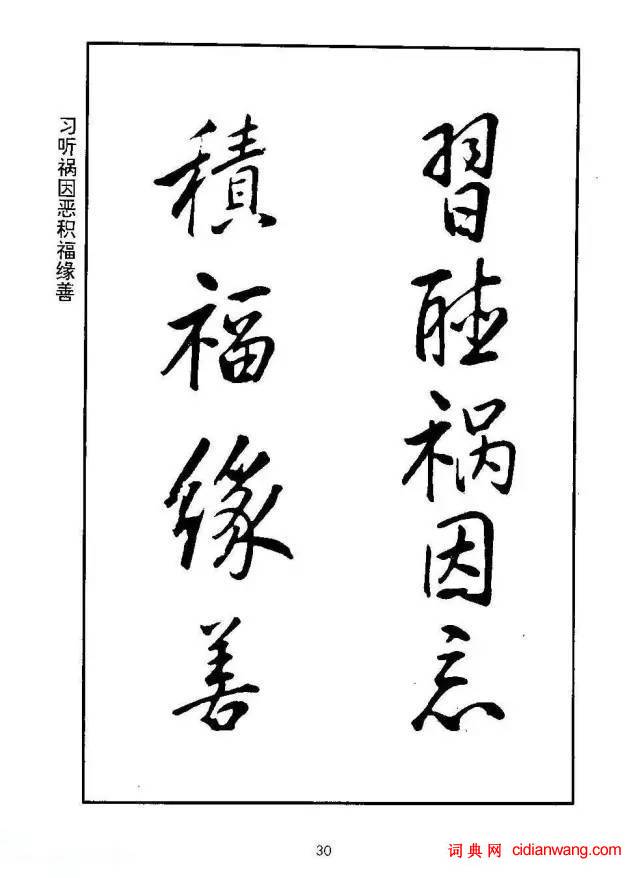 習聽祸因惡
積福緣善
习听祸因恶积福缘善
30
词典网 cidianwang.com